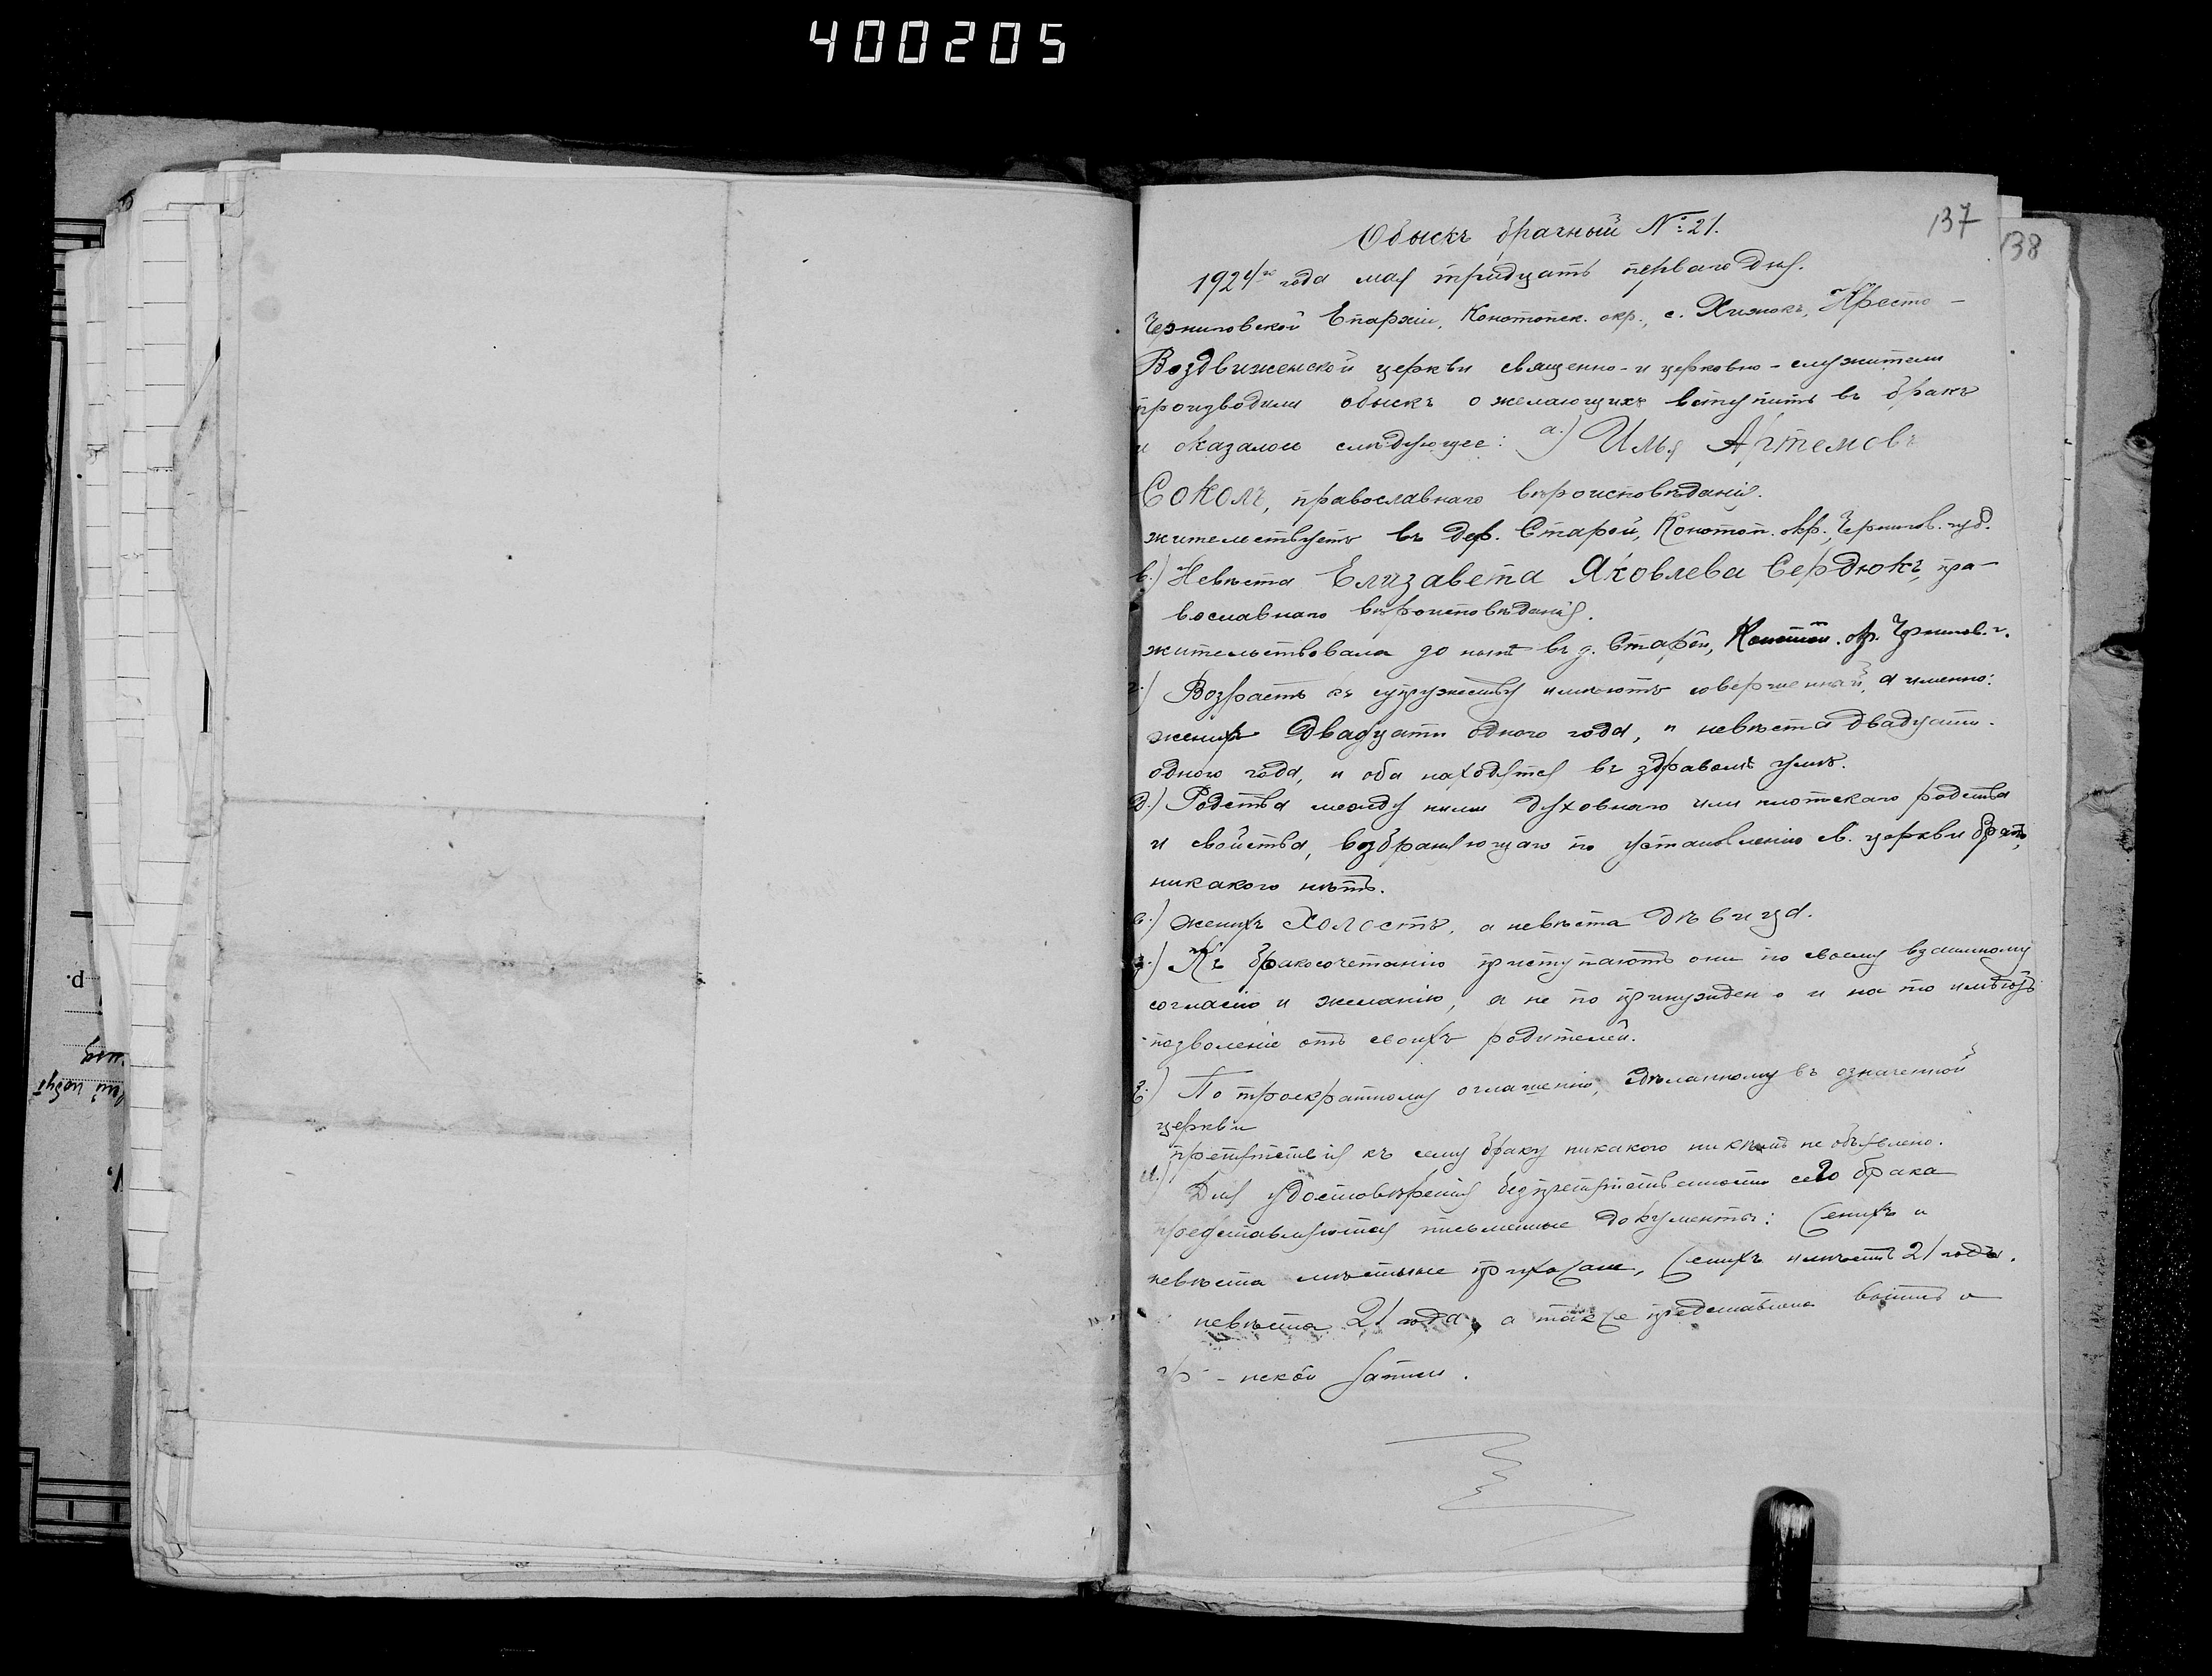 400205
137
138
Обыскъ брачный № 21.
1924го года мая тридцать перваго дня.
Черниговской Епархіи, Конотопск. окр., с. Хижокъ, Кресто-
Воздвиженской церкви священно-и церковно-служители
производили обыскъ о желающихъ вступить въ бракъ
и оказалось слѣдующее: а.) Илья Артемовъ
Соколъ, православнаго вѣроисповѣданія.
жительствуетъ въ дер. Старой, Конотоп. окр., Чернигов. губ.
в.) Невѣста Елизавета Яковлева Сердюкъ, пра-
вославнаго вѣроисповѣданія.
жительствовала до нынѣ въ д. Старой, Конотоп. окр. Чернигов. г.
г.) Возрастъ къ супружеству имѣютъ совершенный, а именно:
женихъ двадцати одного года, а невѣста двадцати
одного года, и оба находятся въ здравомъ умѣ.
д.) Родства между ними духовнаго или плотскаго родства
и свойства, возбраняющаго по установленію св. церкви бракъ,
никакого нѣтъ.
е.) женихъ холостъ, а невѣста дѣвица.
ж.) Къ бракосочетанію приступаютъ они по своему взаимному
согласію и желанію, а не по принужден о и на то имѣютъ
позволеніе отъ своихъ родителей.
з.) По троекратному оглашенію, сдѣланному въ означенной
церкви
препятствія къ сему браку никакого никѣмъ не объявлено.
и.) Для удостовѣренія безпрепятственности сего брака
представляются письменные документы: женихъ и
невѣста мѣстные прихожане, женихъ имѣетъ 21 годъ.
невѣста 21 года, а также представлена
нской записи.
р.